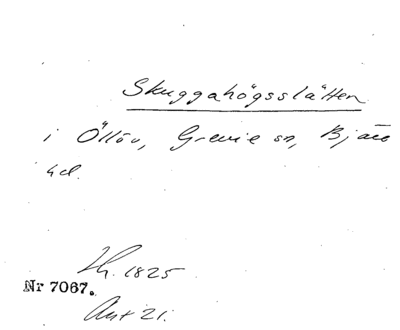 Skuggahögsslätten
i Öllöv, Grevie sn, Bjäre
hd.
Lh. 1825
Nr 7067.
Ant 21.